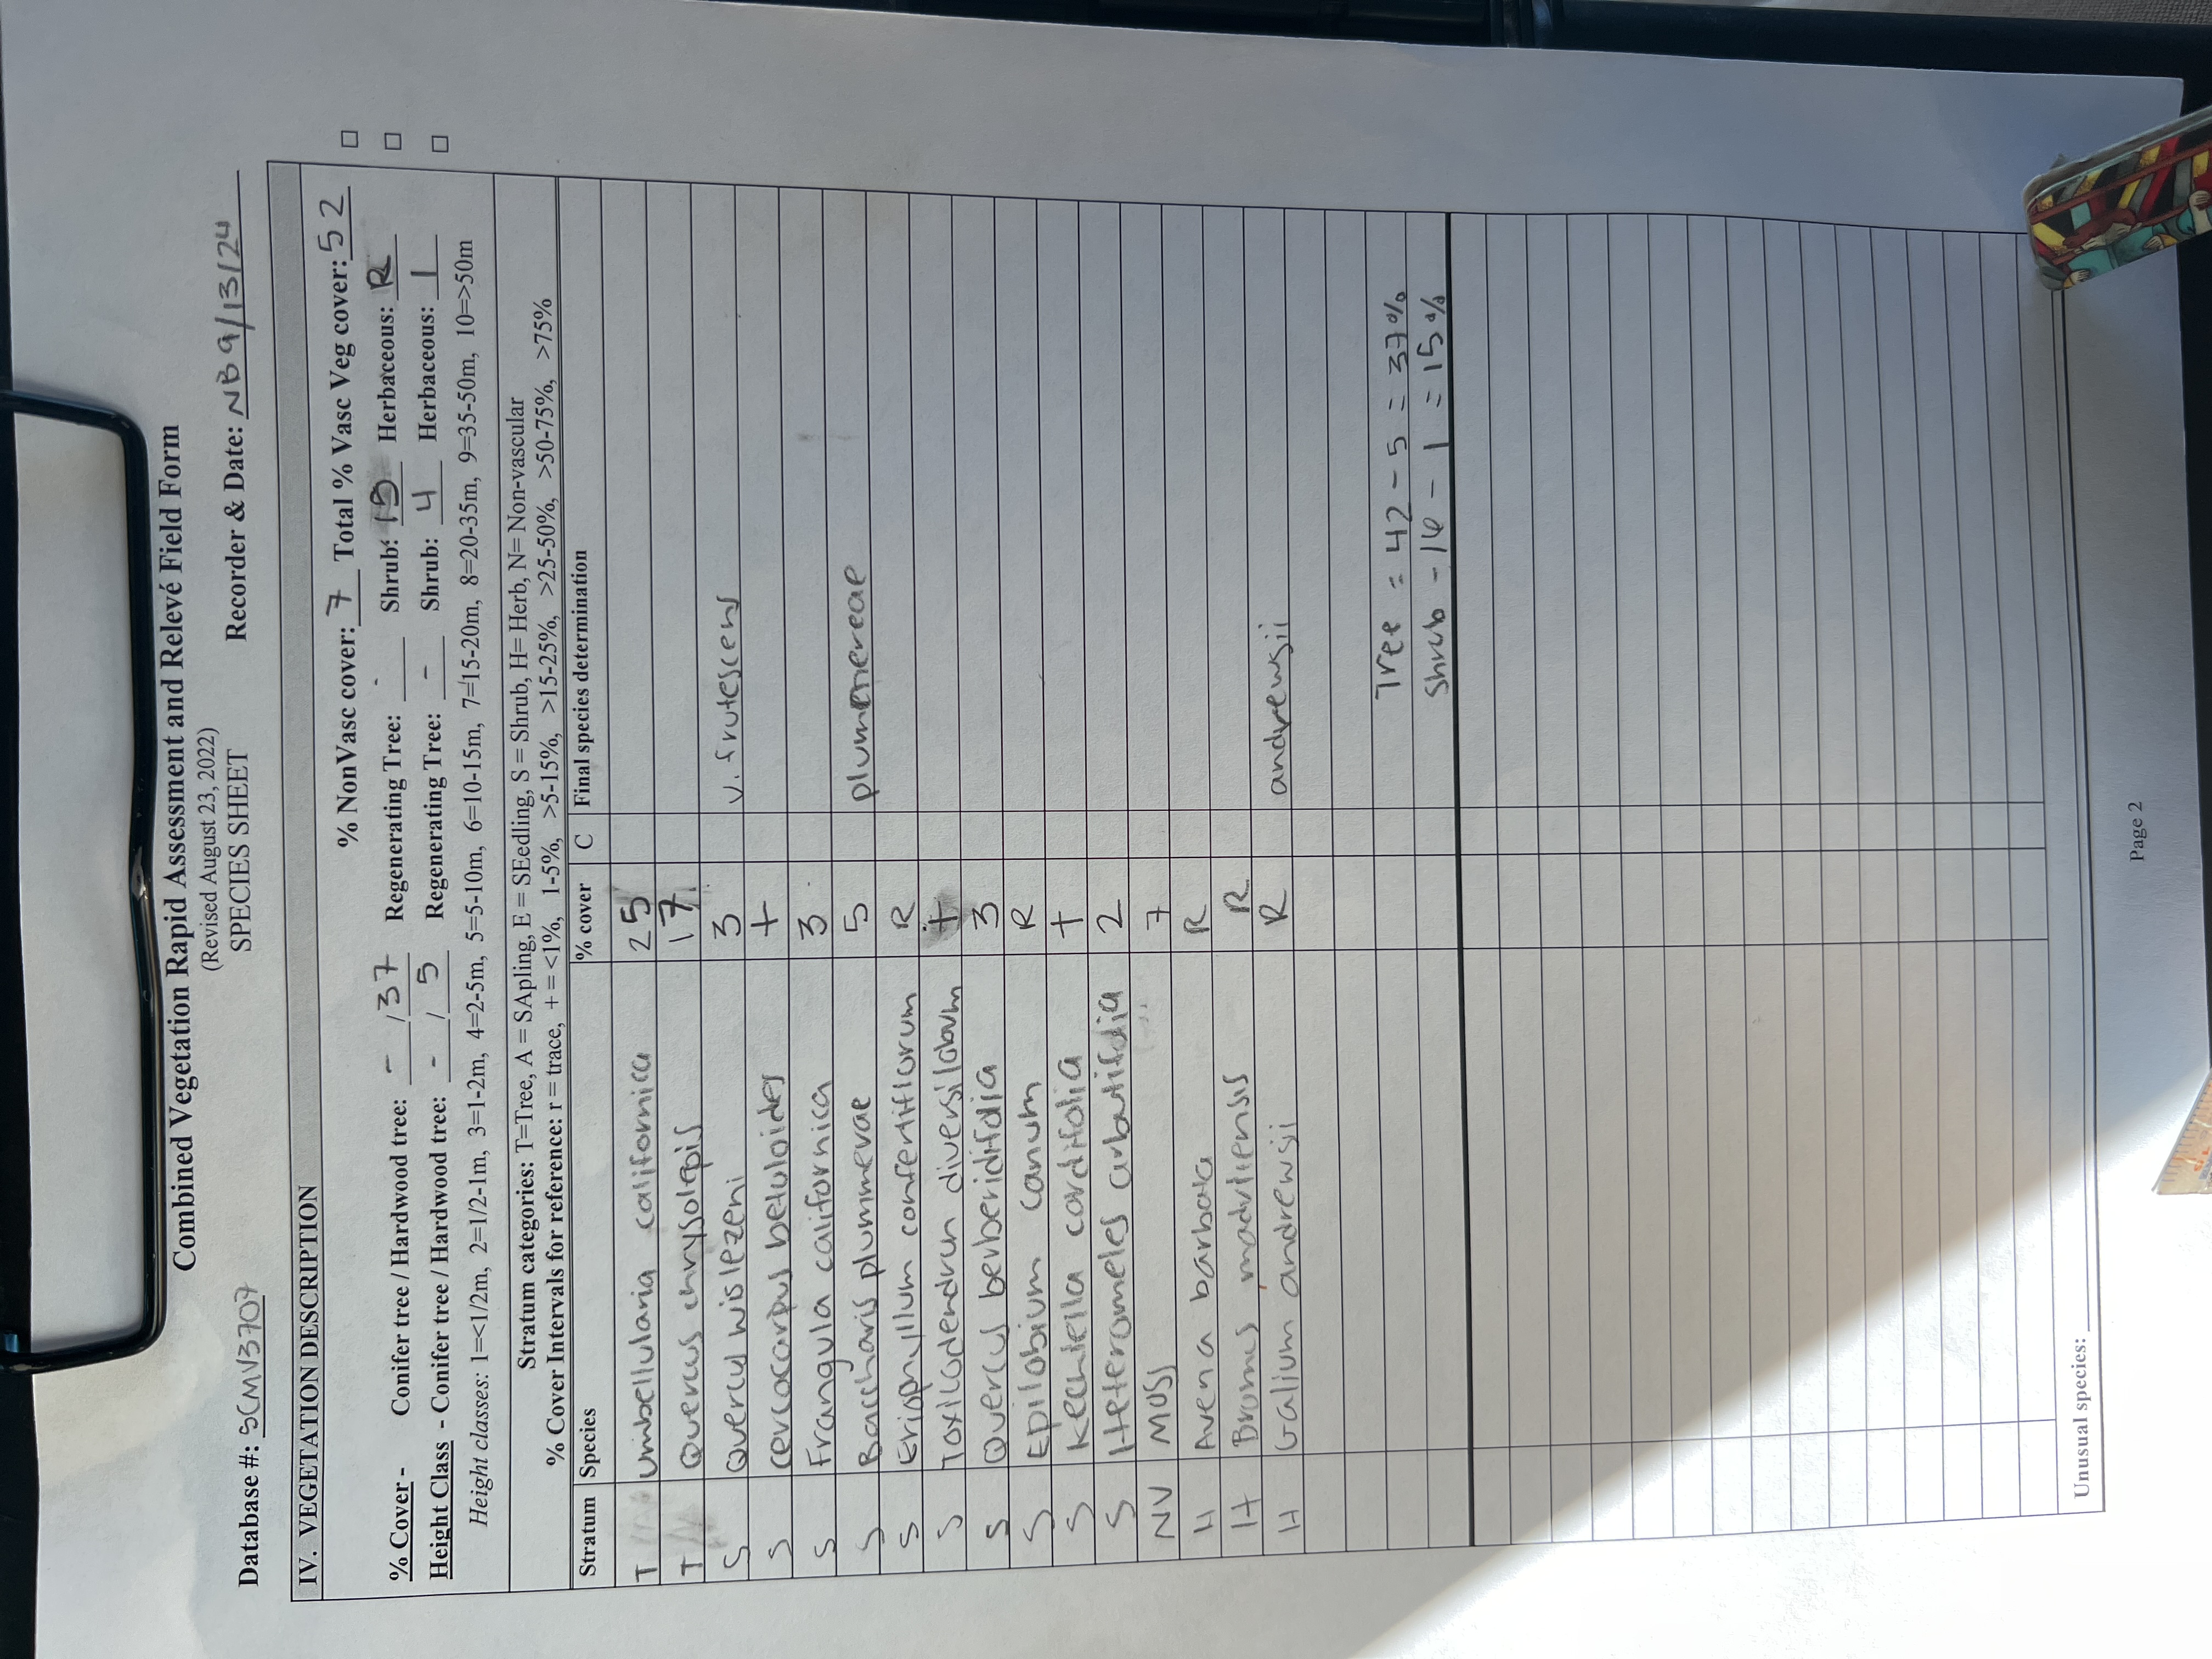 Combined Vegetation Rapid Assessment and Relevé Field Form
(Revised August 23, 2022)
SPECIES SHEET
Database #: SCMV3707 Recorder & Date: NB 9/13/24
IV. VEGETATION DESCRIPTION
% NonVasc cover: 7 Total % Vasc Veg cover: 52 □
% Cover - Conifer tree / Hardwood tree: - / 37 Regenerating Tree: - Shrub: 15 Herbaceous: R □
Height Class - Conifer tree / Hardwood tree: - / 5 Regenerating Tree: - Shrub: 4 Herbaceous: 1 □
Height classes: 1=<1/2m, 2=1/2-1m, 3=1-2m, 4=2-5m, 5=5-10m, 6=10-15m, 7=15-20m, 8=20-35m, 9=35-50m, 10=>50m
Stratum categories: T=Tree, A = SApling, E = SEedling, S = Shrub, H= Herb, N= Non-vascular
% Cover Intervals for reference: r = trace, + = <1%, 1-5%, >5-15%, >15-25%, >25-50%, >50-75%, >75%
Stratum Species % cover C Final species determination
T Umbellularia californica 25
T Quercus chrysolepis 17
S Quercus wislezeni 3 v. frutescens
S Cercocarpus betuloides +
S Frangula californica 3
S Baccharis plummerae 5 plummereae
S Eriophyllum confertiflorum R
S Toxicodendrun diversilobum +
S Quercus berberidifolia 3
S Epilobium canum R
S Keckiella cordifolia +
S Heteromeles arbutifolia 2
NV Moss 7
H Avena barbata R
H Bromus madritensis R
H Galium andrewsii R andrewsii
Tree = 42 - 5 = 37%
Shrub - 16 - 1 = 15%
Unusual species:
Page 2